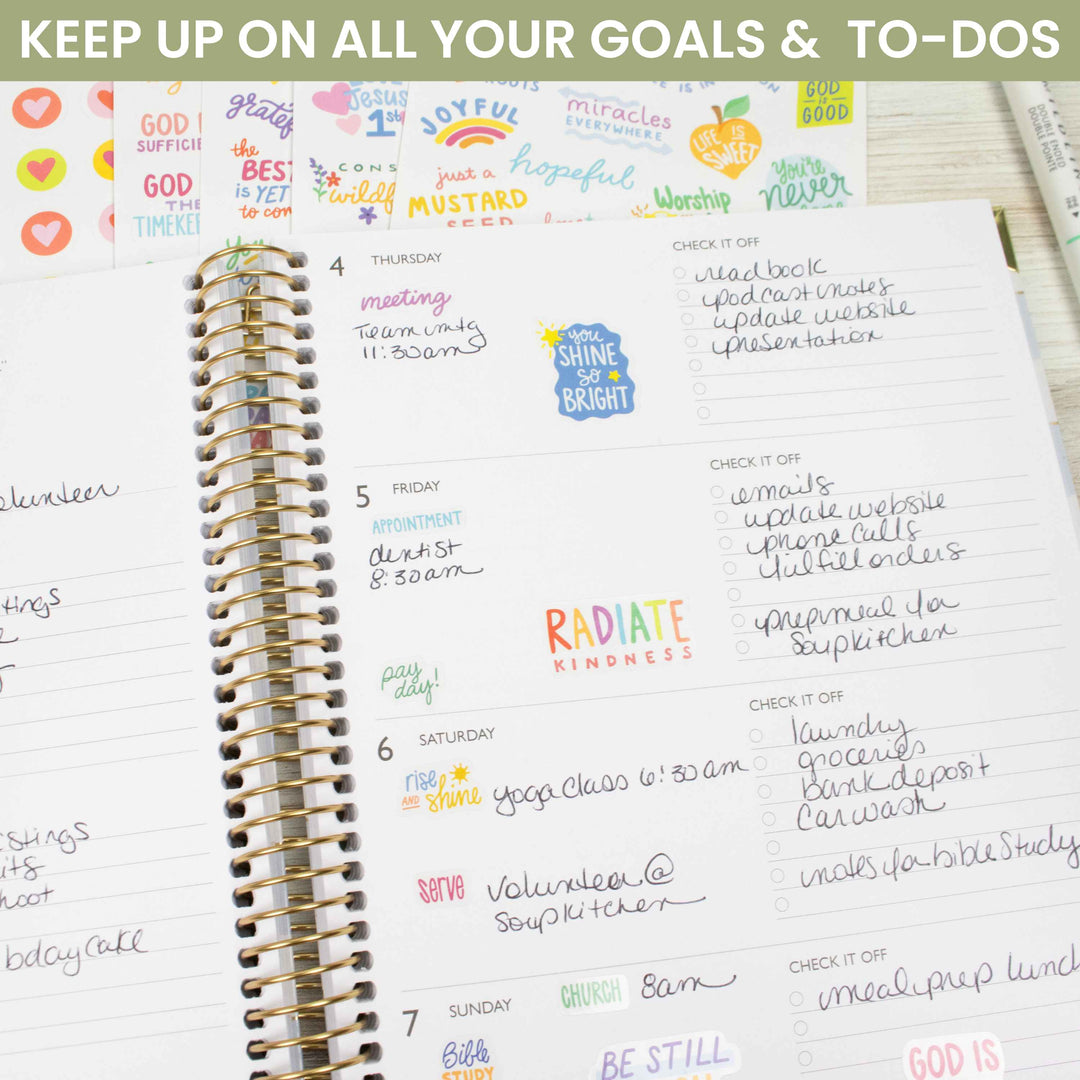 KEEP UP ON ALL YOUR GOALS & TO-DOS
GOD
SUFFICIE
GOD
THE
TIMEKE
grateful
the
BEST
is YET
to con
Jesus
1st
CONS
wildf
JOYFUL
just a
MUSTARD
SEED
miracles
EVERYWHERE
hopeful
LIFE IS
SWEET
Worship
GOD
is
GOOD
You're
never
DOUBLE ENDED
DOUBLE POINTE
4 THURSDAY
meeting
Team mtg
11:30am
you
SHINE
so
BRIGHT
CHECK IT OFF
read book
podcast notes
update website
presentation
5 FRIDAY
APPOINTMENT
dentist
8:30am
RADIATE
KINDNESS
pay
day!
CHECK IT OFF
emails
update website
phone calls
fulfill orders
prep meal for
Soup kitchen
6 SATURDAY
rise
AND shine
yoga class 6:30am
serve
volunteer @
Soup kitchen
CHECK IT OFF
laundry
groceries
bank deposit
car wash
notes for bible Study
7 SUNDAY
CHURCH 8am
Bible
STUDY
BE STILL
CHECK IT OFF
meal prep lunch
GOD IS
olunteer
stings
hoot
bday cake